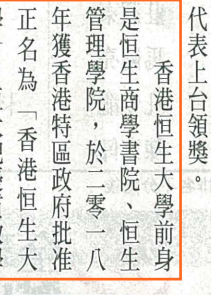 代表上台領獎。
香港恒生大學前身
是恒生商學書院、恒生
管理學院，於二零一八
年獲香港特區政府批准
正名為「香港恒生大